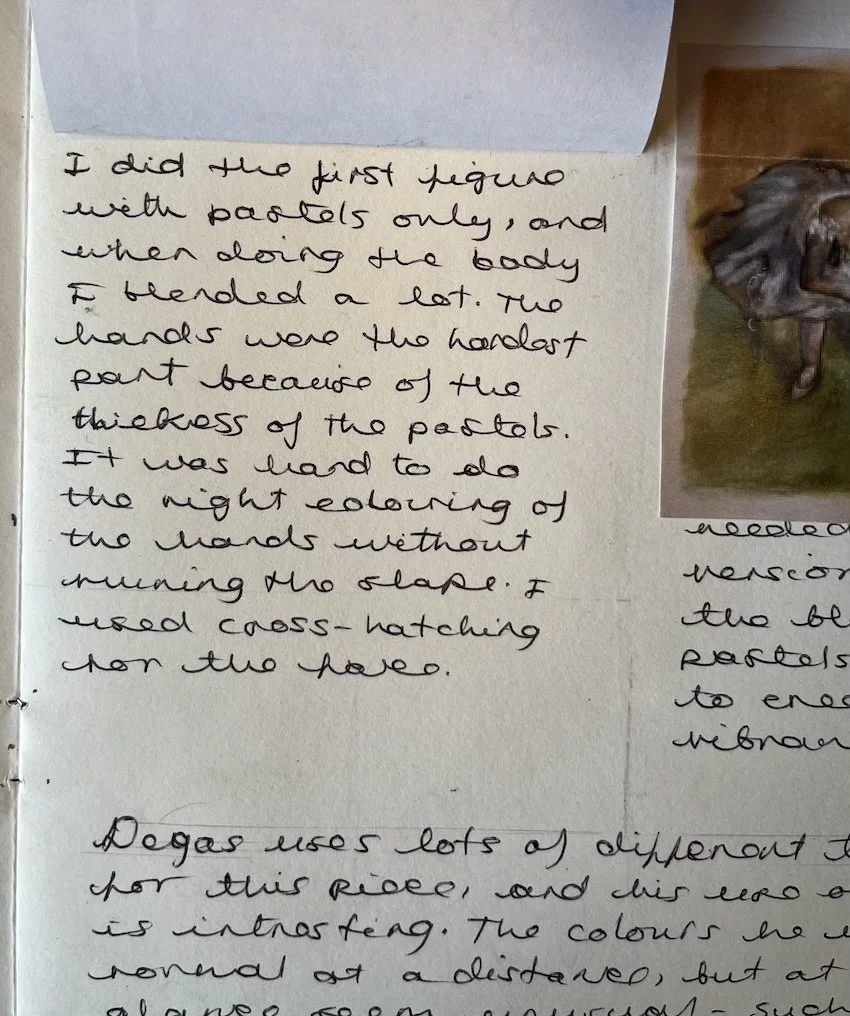 I did the first figure
with pastels only, and
when doing the body
I blended a lot. The
hands were the hardest
part because of the
thickess of the pastels.
It was hard to do
the right colouring of
the hands without
ruining the shape. I
used cross-hatching
for the face.
needed
version
the bl
pastels
to
vibran
Degas uses lots of different t
for this piece, and his use o
is intresting. The colours he
normal at a distance, but at
glance seem unusual - such